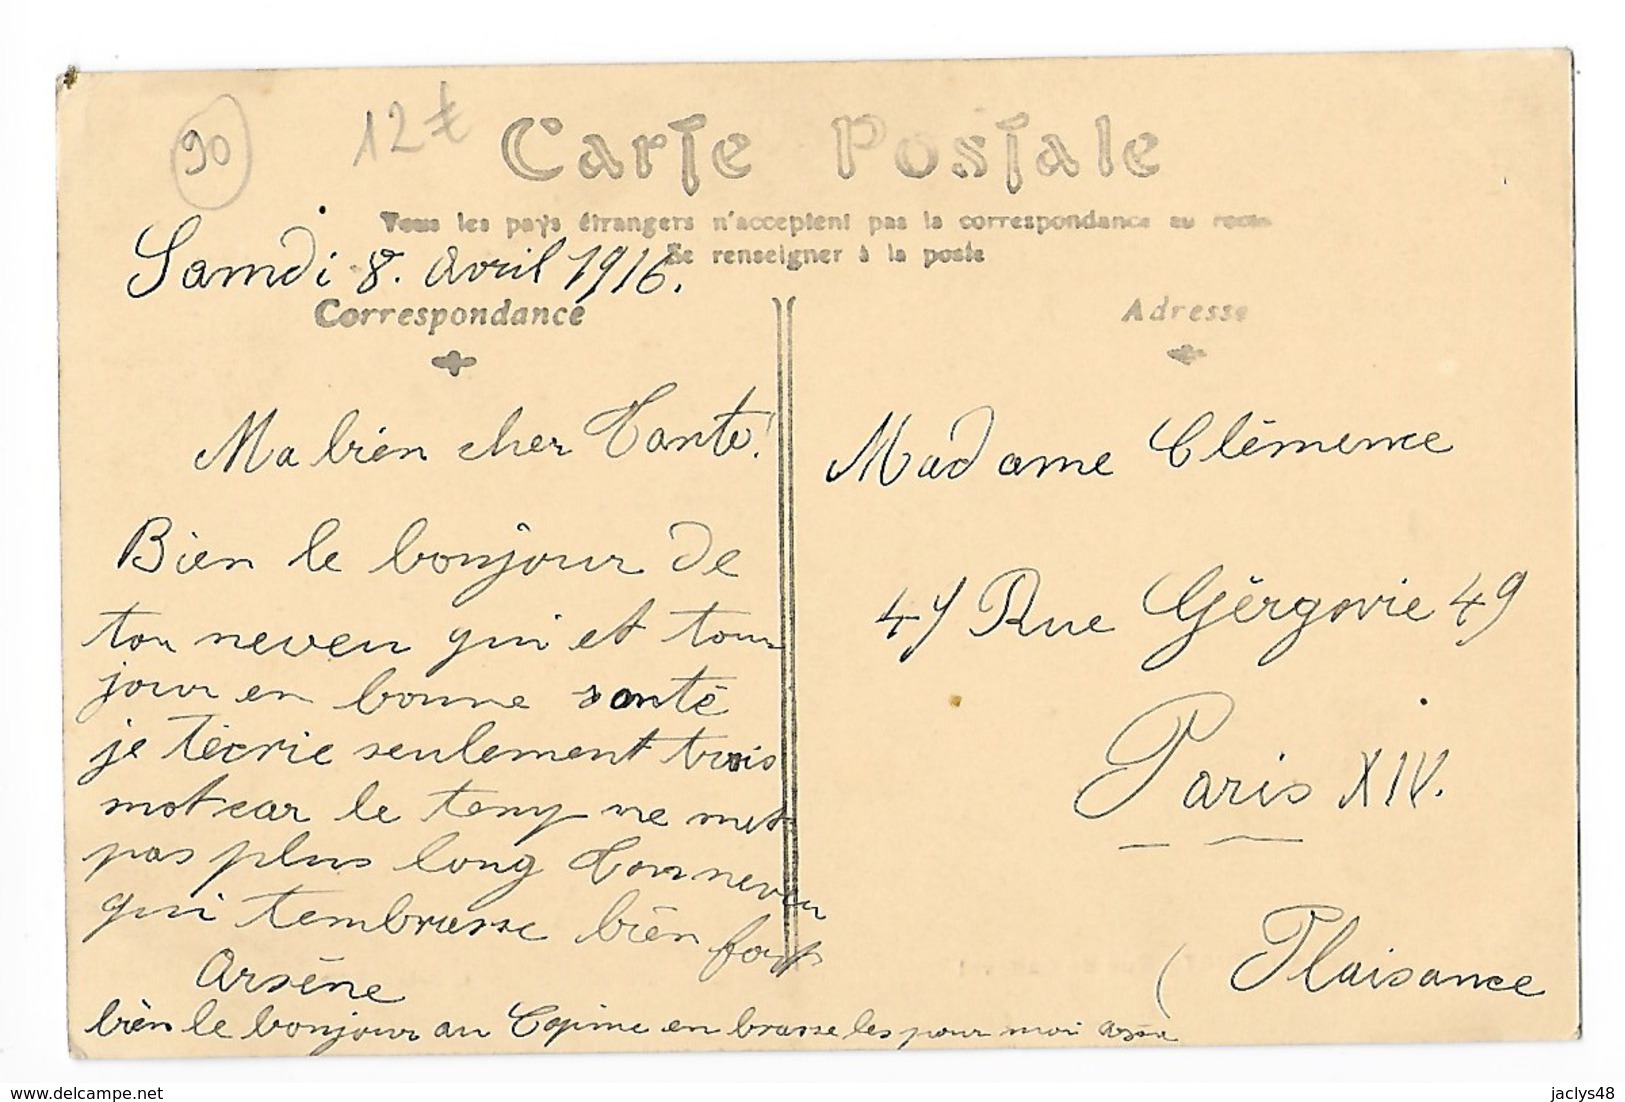 90
12€
Carte Postale
Tous les pays étrangers n'acceptent pas la correspondance au recto
Se renseigner à la poste
Samdi 8. Avril 1916.
Correspondance
Ma bien cher Tante!
Bien le bonjour de
ton neveu qui et tou
jour en bonne santé
je técrie seulement trois
mot car le temp me met
pas plus long Ton neveu
qui tembrasse bién fort
Arsène
bièn le bonjour au Copine en brasse les pour moi Arsène
Adresse
Madame Clémence
49 Rue Gérgovie 49
Paris XIV.
(Plaisance
jaclys48